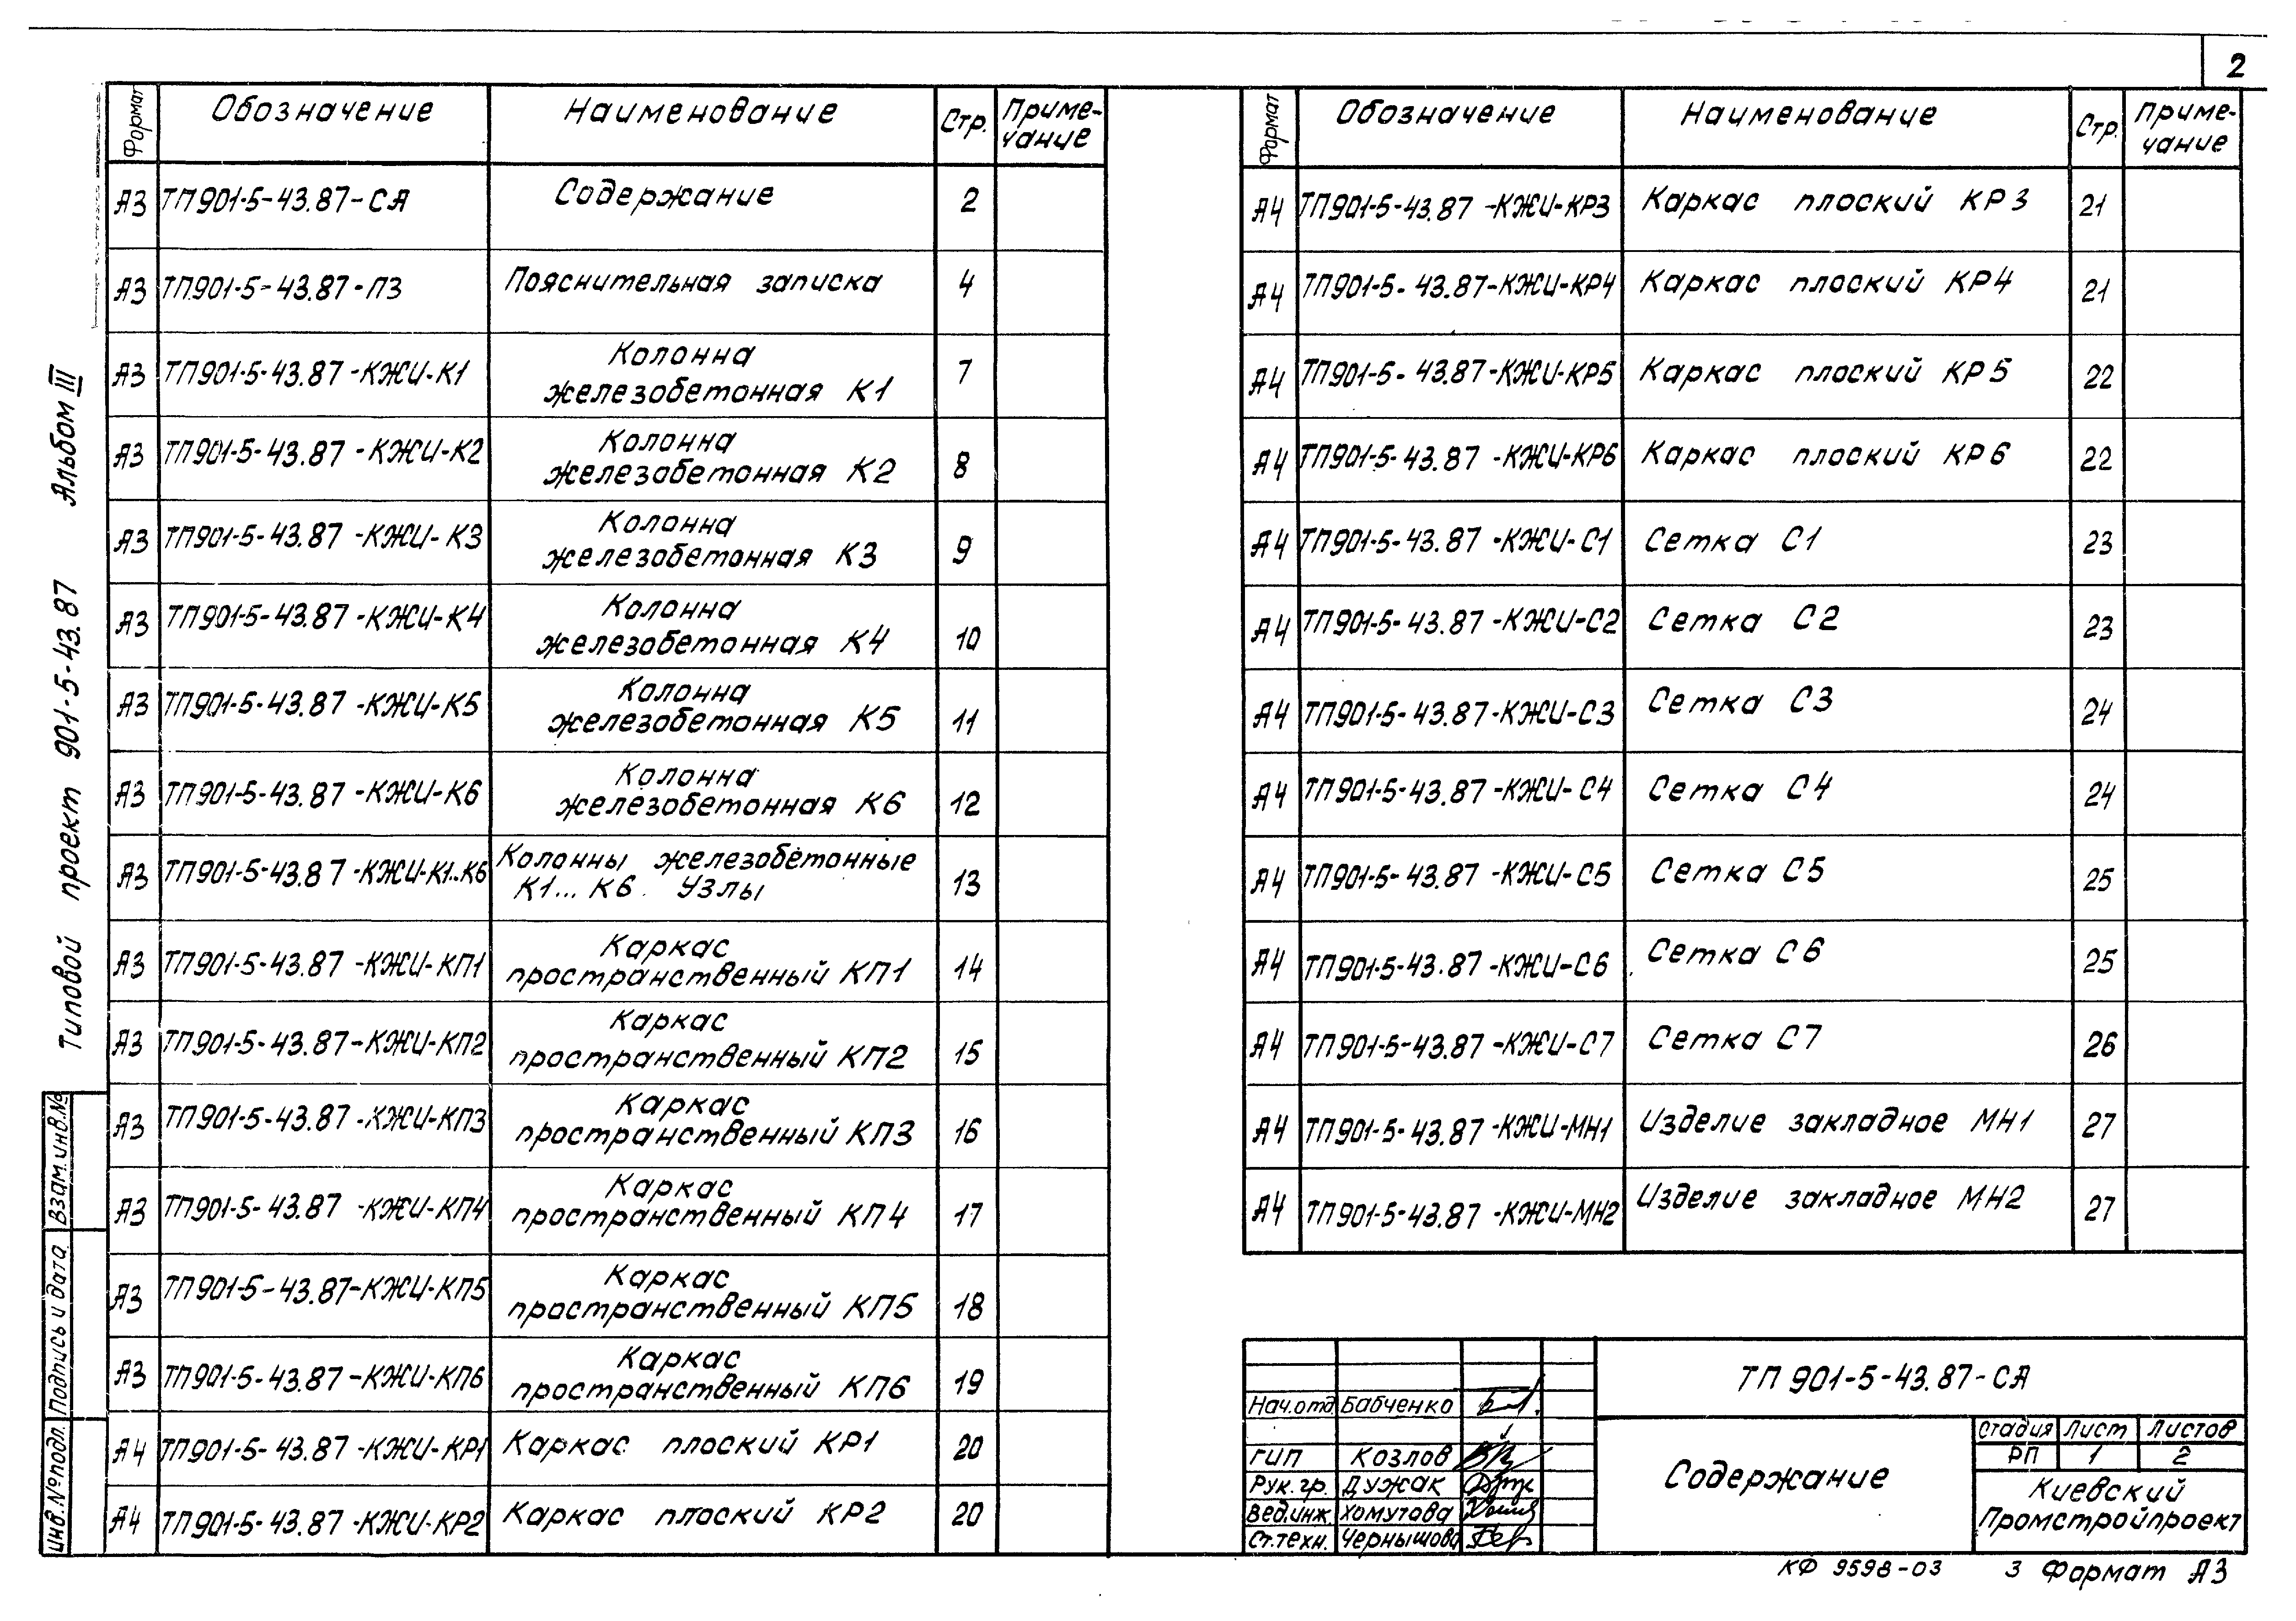 2
Типовой проект 901-5-43.87 Альбом III
Формат Обозначение Наименование Стр. Приме-
чание
А3 ТП901-5-43.87-СА Содержание 2
А3 ТП901-5-43.87-ПЗ Пояснительная записка 4
А3 ТП901-5-43.87-КЖИ-К1 Колонна
железобетонная К1 7
А3 ТП901-5-43.87-КЖИ-К2 Колонна
железобетонная К2 8
А3 ТП901-5-43.87-КЖИ-К3 Колонна
железобетонная К3 9
А3 ТП901-5-43.87-КЖИ-К4 Колонна
железобетонная К4 10
А3 ТП901-5-43.87-КЖИ-К5 Колонна
железобетонная К5 11
А3 ТП901-5-43.87-КЖИ-К6 Колонна
железобетонная К6 12
А3 ТП901-5-43.87-КЖИ-К1..К6 Колонны железобетонные
К1... К6. Узлы 13
А3 ТП901-5-43.87-КЖИ-КП1 Каркас
пространственный КП1 14
А3 ТП901-5-43.87-КЖИ-КП2 Каркас
пространственный КП2 15
А3 ТП901-5-43.87-КЖИ-КП3 Каркас
пространственный КП3 16
А3 ТП901-5-43.87-КЖИ-КП4 Каркас
пространственный КП4 17
А3 ТП901-5-43.87-КЖИ-КП5 Каркас
пространственный КП5 18
А3 ТП901-5-43.87-КЖИ-КП6 Каркас
пространственный КП6 19
А4 ТП901-5-43.87-КЖИ-КР1 Каркас плоский КР1 20
А4 ТП901-5-43.87-КЖИ-КР2 Каркас плоский КР2 20
Формат Обозначение Наименование Стр. Приме-
чание
А4 ТП901-5-43.87-КЖИ-КР3 Каркас плоский КР3 21
А4 ТП901-5-43.87-КЖИ-КР4 Каркас плоский КР4 21
А4 ТП901-5-43.87-КЖИ-КР5 Каркас плоский КР5 22
А4 ТП901-5-43.87-КЖИ-КР6 Каркас плоский КР6 22
А4 ТП901-5-43.87-КЖИ-С1 Сетка С1 23
А4 ТП901-5-43.87-КЖИ-С2 Сетка С2 23
А4 ТП901-5-43.87-КЖИ-С3 Сетка С3 24
А4 ТП901-5-43.87-КЖИ-С4 Сетка С4 24
А4 ТП901-5-43.87-КЖИ-С5 Сетка С5 25
А4 ТП901-5-43.87-КЖИ-С6 Сетка С6 25
А4 ТП901-5-43.87-КЖИ-С7 Сетка С7 26
А4 ТП901-5-43.87-КЖИ-МН1 Изделие закладное МН1 27
А4 ТП901-5-43.87-КЖИ-МН2 Изделие закладное МН2 27
Инв.№подл. Подпись и дата Взам.инв.№
ТП 901-5-43.87-СА
Нач.отд. Бабченко
ГИП Козлов
Рук.гр. Дужак
Вед.инж. Хомутова
Ст.техн. Чернышова
Содержание
Стадия Лист Листов
РП 1 2
Киевский
Промстройпроект
КФ 9598-03 3 Формат А3